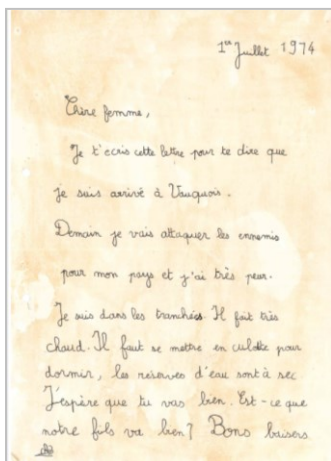 1er Juillet 1974
Chère femme,
Je t'ecris cette lettre pour te dire que
je suis arrivé à Vauquois.
Demain je vais attaquer les ennemis
pour mon pays et j'ai très peur.
Je suis dans les tranchées. Il fait très
chaud. Il faut se mettre en culotte pour
dormir, les réserves d'eau sont à sec
J'espère que tu vas bien. Est-ce que
notre fils va bien? Bons baisers